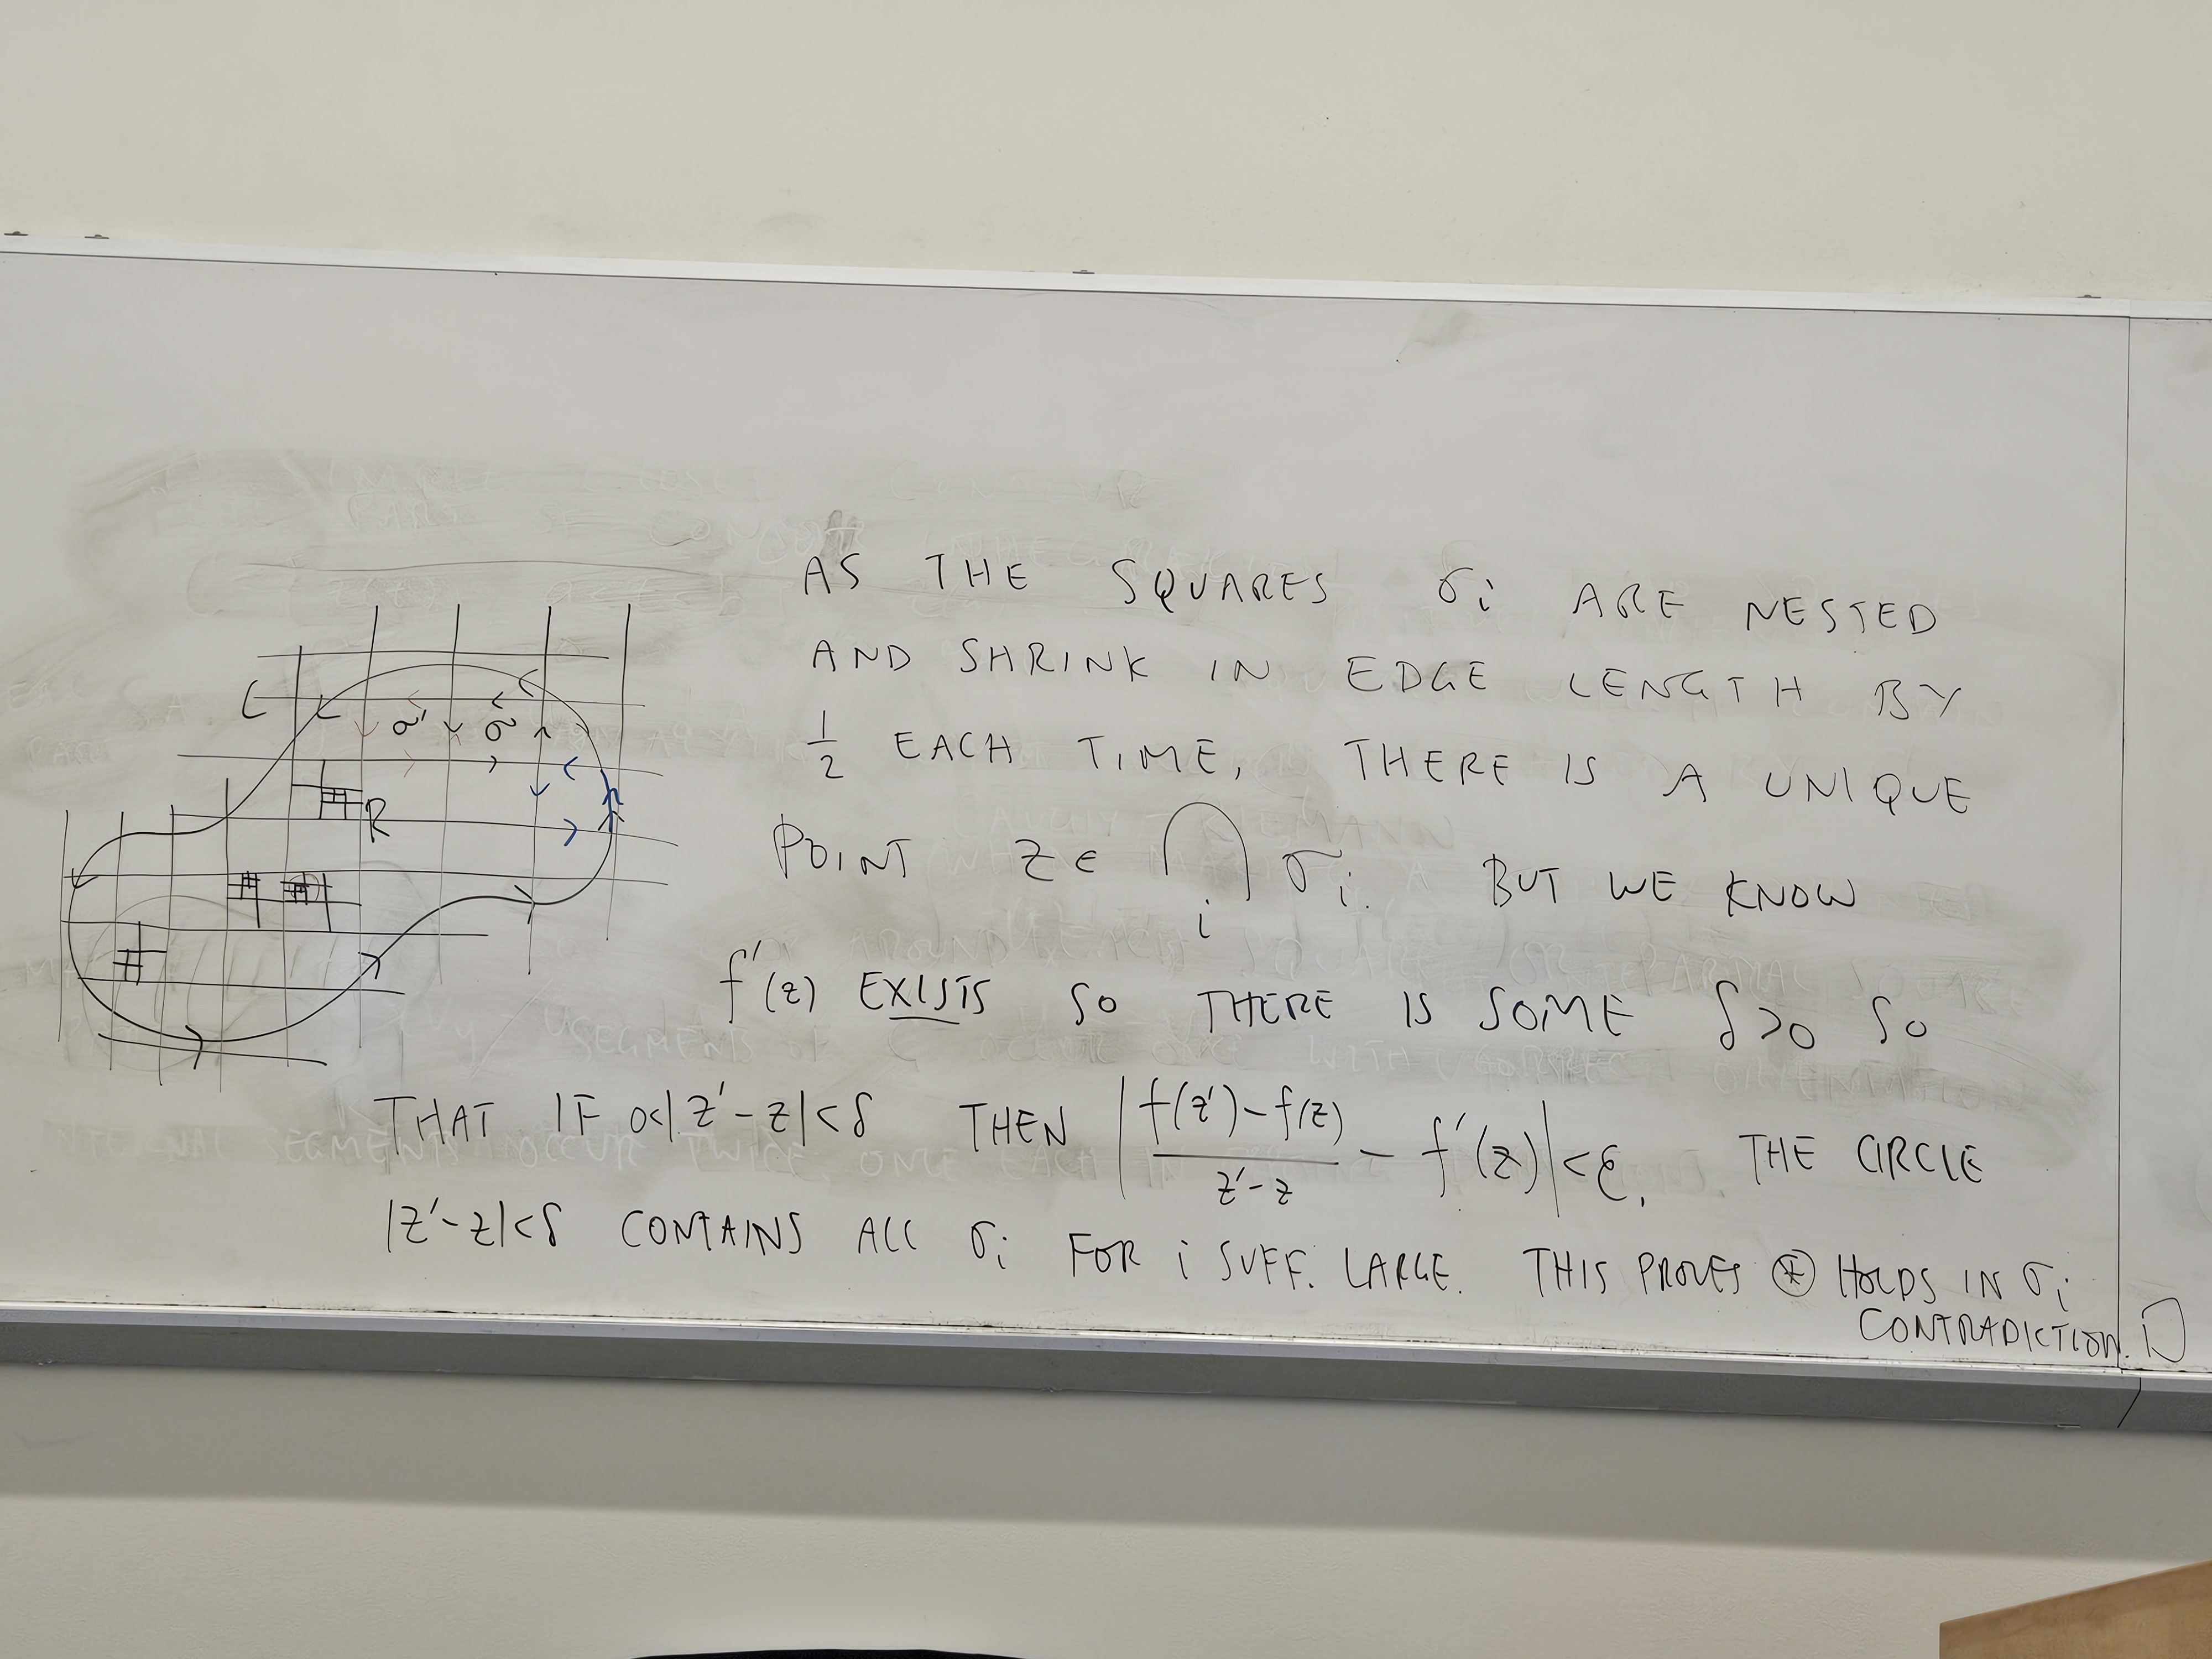 AS THE SQUARES σi ARE NESTED
AND SHRINK IN EDGE LENGTH BY
1/2 EACH TIME, THERE IS A UNIQUE
POINT z ∈ ⋂i σi. BUT WE KNOW
f'(z) EXISTS SO THERE IS SOME δ>0 SO
THAT IF 0<|z'-z|<δ THEN |(f(z')-f(z))/(z'-z) - f'(z)|<ε. THE CIRCLE
|z'-z|<δ CONTAINS ALL σi FOR i SUFF. LARGE. THIS PROVES ⊛ HOLDS IN σi
CONTRADICTION. □
C
σ' σ
R